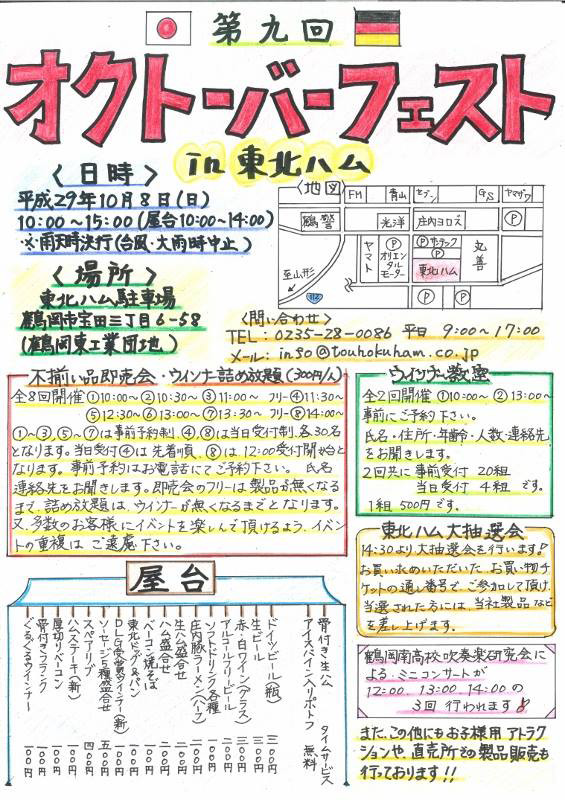 第九回
オクトーバーフェスト
in 東北ハム
〈日時〉
平成29年10月8日(日)
10:00～15:00(屋台10:00～14:00)
※雨天時決行(台風・大雨時中止)
〈場所〉
東北ハム駐車場
鶴岡市宝田三丁目6-58
(鶴岡東工業団地)
〈地図〉
FM
青山
セブン
GS
ヤマザワ
鶴警
光洋
庄内ヨロズ
P
ヤマト
P
オリエンタルモーター
P
ホテック
東北ハム
丸善
至山形
112
P
P
〈問い合わせ〉
TEL: 0235-28-0086 平日 9:00～17:00
メール: inso@touhokuham.co.jp
不揃い品即売会・ウインナー詰め放題(300円/人)
全8回開催 ①10:00～ ②10:30～ ③11:00～ フリー④11:30～
⑤12:30～ ⑥13:00～ ⑦13:30～ フリー⑧14:00～
①～③、⑤～⑦は事前予約制、④,⑧は当日受付制、各30名
となります。当日受付④は先着順、⑧は12:00受付開始と
なります。事前予約はお電話にてご予約下さい。氏名
連絡先をお聞きします。即売会のフリーは製品が無くなる
まで、詰め放題は、ウインナーが無くなるまでとなります。
又、多数のお客様にイベントを楽しんで頂けるよう、イベン
トの重複はご遠慮下さい。
ウインナー教室
全2回開催 ①10:00～ ②13:00～
事前にご予約下さい。
氏名・住所・年齢・人数・連絡先
をお聞きします。
2回共に事前受付 20組
当日受付 4組 です。
1組 500円です。
東北ハム大抽選会
14:30より大抽選会を行います!
お買い求めいただいた、お買い物チ
ケットの通し番号で、ご参加して頂け、
当選された方には、当社製品など
を差し上げます。
鶴岡南高校吹奏楽研究会に
よる ミニコンサートが
12:00、13:00、14:00の
3回 行われます♪
また、この他にもお子様用アトラク
ションや、直売所での製品販売も
行っております!!
屋台
骨付き生ハム タイムサービス
アイスバイン入りポトフ 無料
ドイツビール(瓶) 三〇〇円
生ビール 三〇〇円
赤・白ワイン(グラス) 二〇〇円
アルコールフリービール 二〇〇円
ソフトドリンク各種 一〇〇円